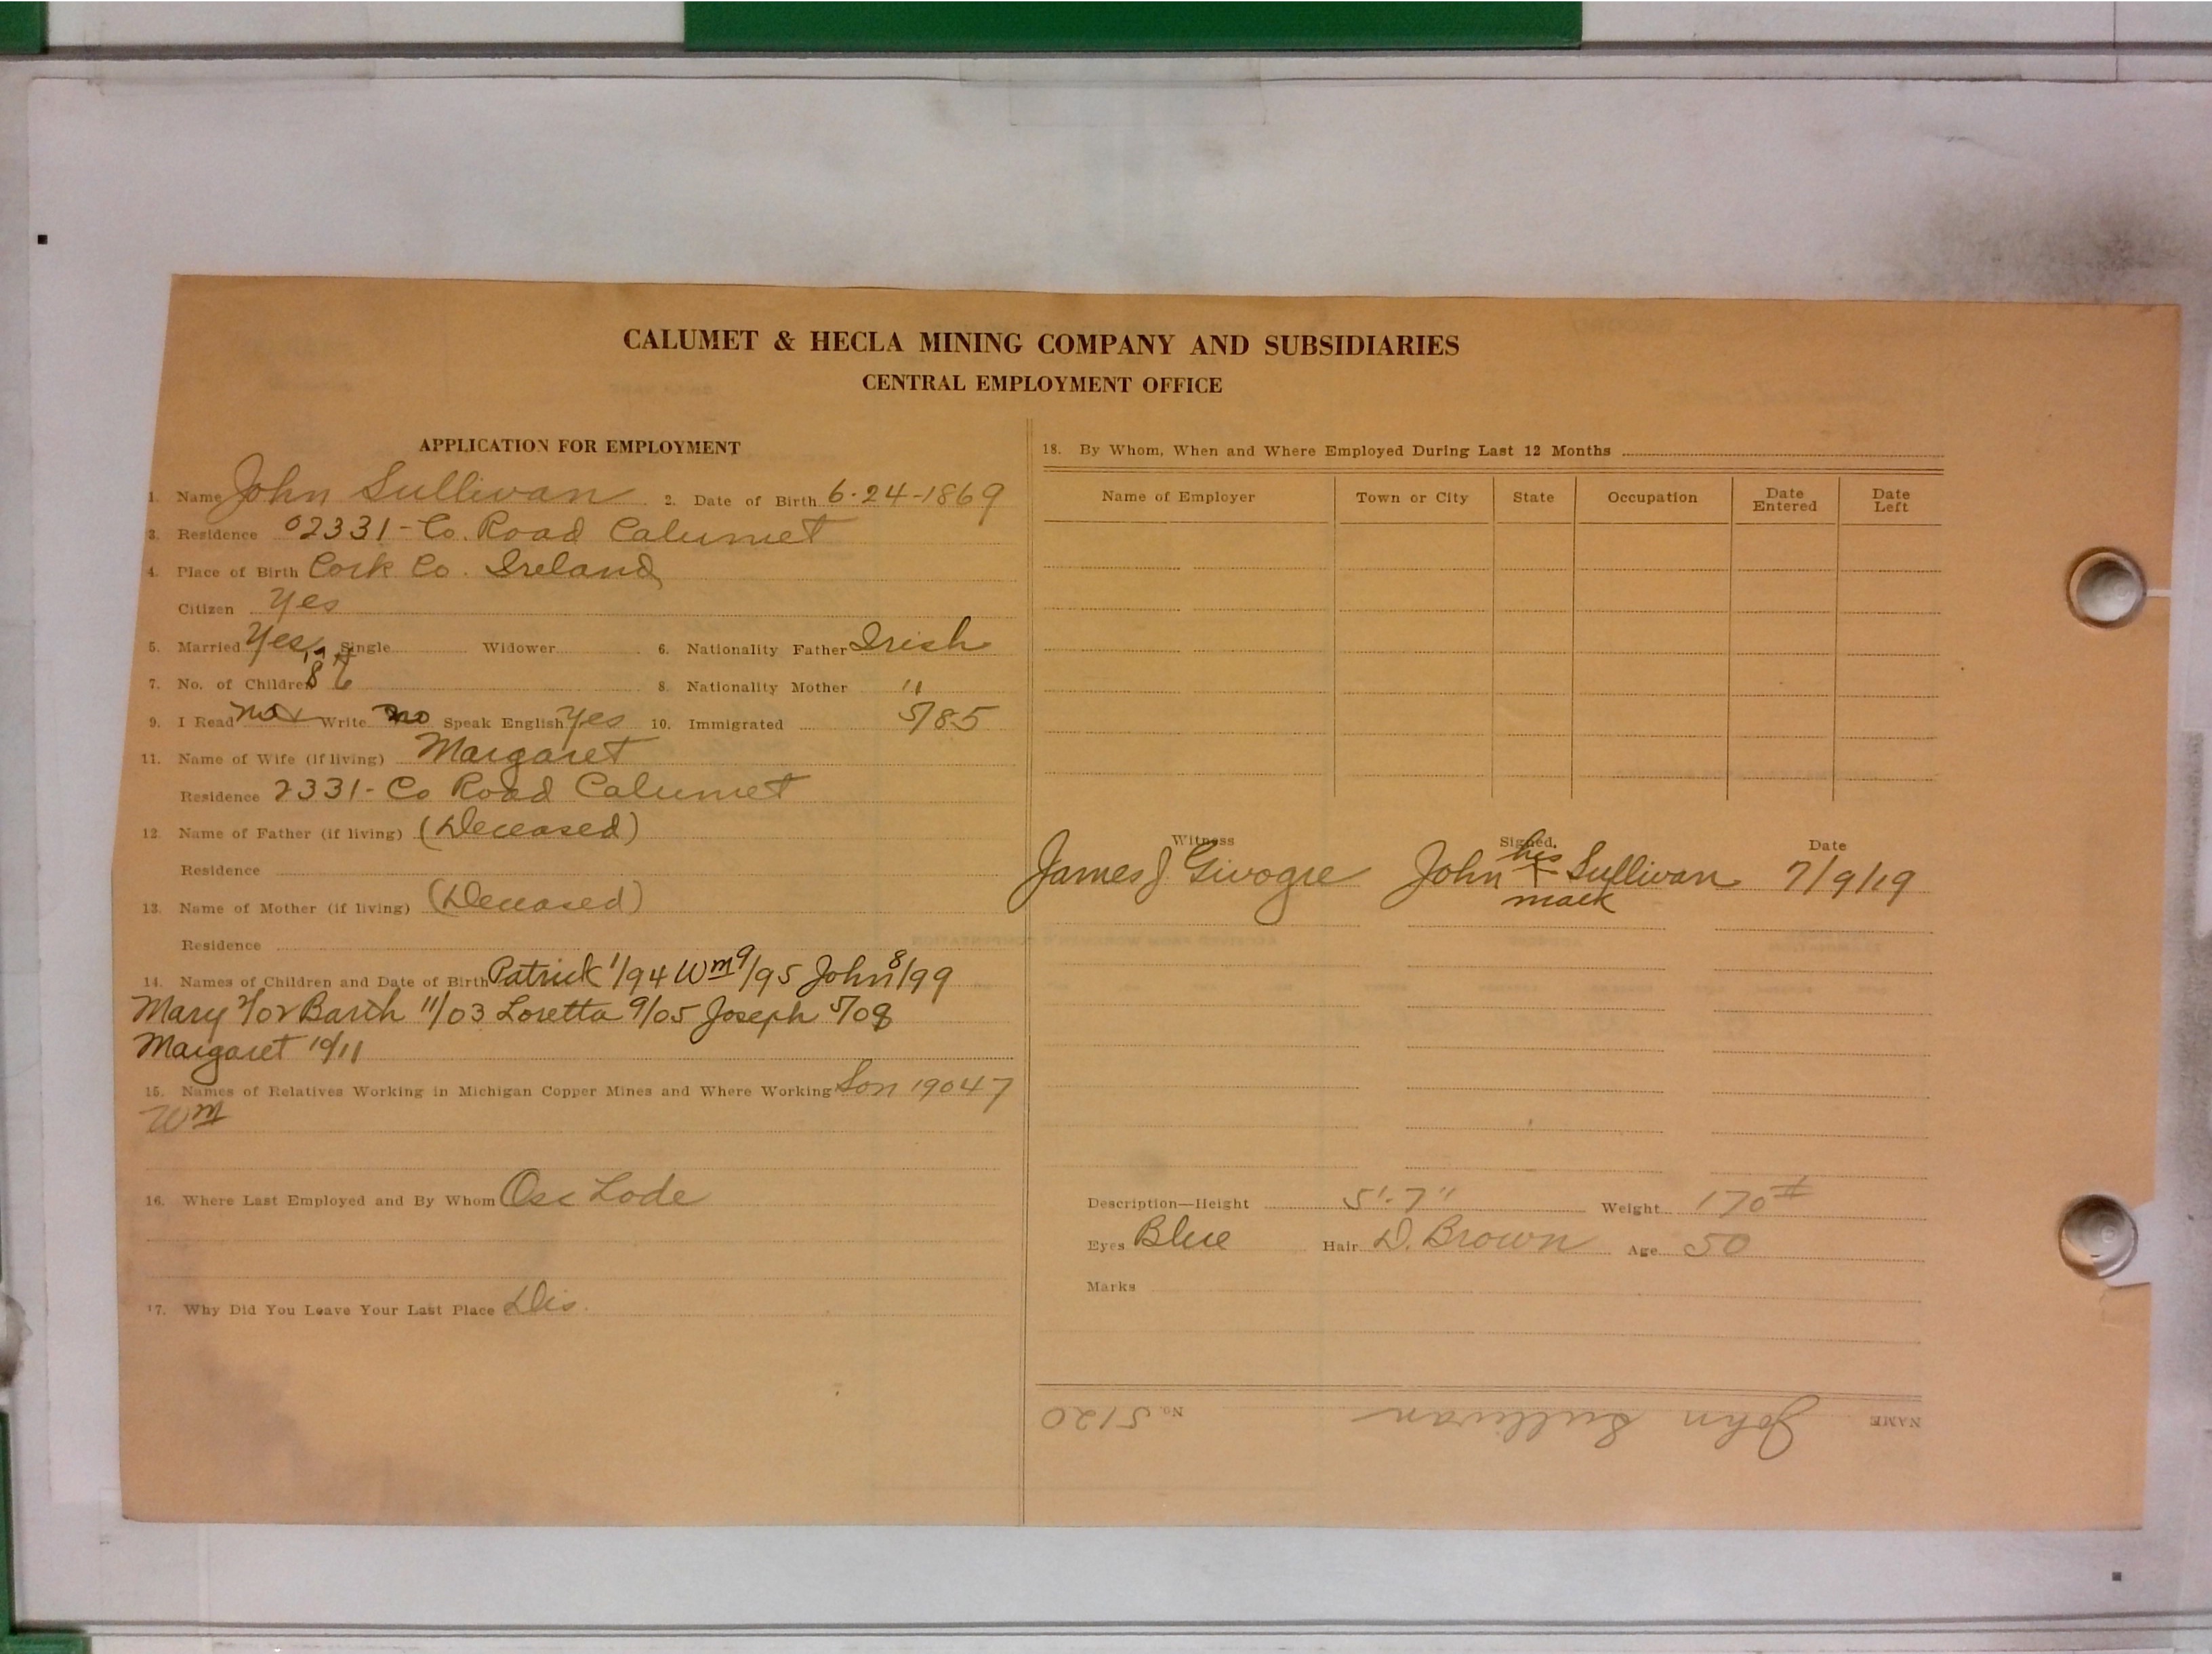 CALUMET & HECLA MINING COMPANY AND SUBSIDIARIES
CENTRAL EMPLOYMENT OFFICE
APPLICATION FOR EMPLOYMENT
1. Name John Sullivan 2. Date of Birth 6-24-1869
3. Residence 02331-Co. Road Calumet
4. Place of Birth Cork Co. Ireland
Citizen Yes
5. Married Yes Single Widower 6. Nationality Father Irish
7. No. of Children 8 8. Nationality Mother "
9. I Read no Write no Speak English Yes 10. Immigrated 5/85
11. Name of Wife (if living) Margaret
Residence 2331-Co Road Calumet
12. Name of Father (if living) (Deceased)
Residence
13. Name of Mother (if living) (Deceased)
Residence
14. Names of Children and Date of Birth Patrick 1/94 Wm 9/95 John 8/99
Mary /02 Barth 11/03 Loretta 9/05 Joseph 5/08
Margaret 10/11
15. Names of Relatives Working in Michigan Copper Mines and Where Working Son 19047
Wm
16. Where Last Employed and By Whom Osc Lode
17. Why Did You Leave Your Last Place Dis.
18. By Whom, When and Where Employed During Last 12 Months
Name of Employer Town or City State Occupation Date Entered Date Left
Witness Signed. Date
James J Givogre John his + mark Sullivan 7/9/19
Description—Height 5'-7" Weight 170#
Eyes Blue Hair D. Brown Age 50
Marks
NAME John Sullivan No. 5120